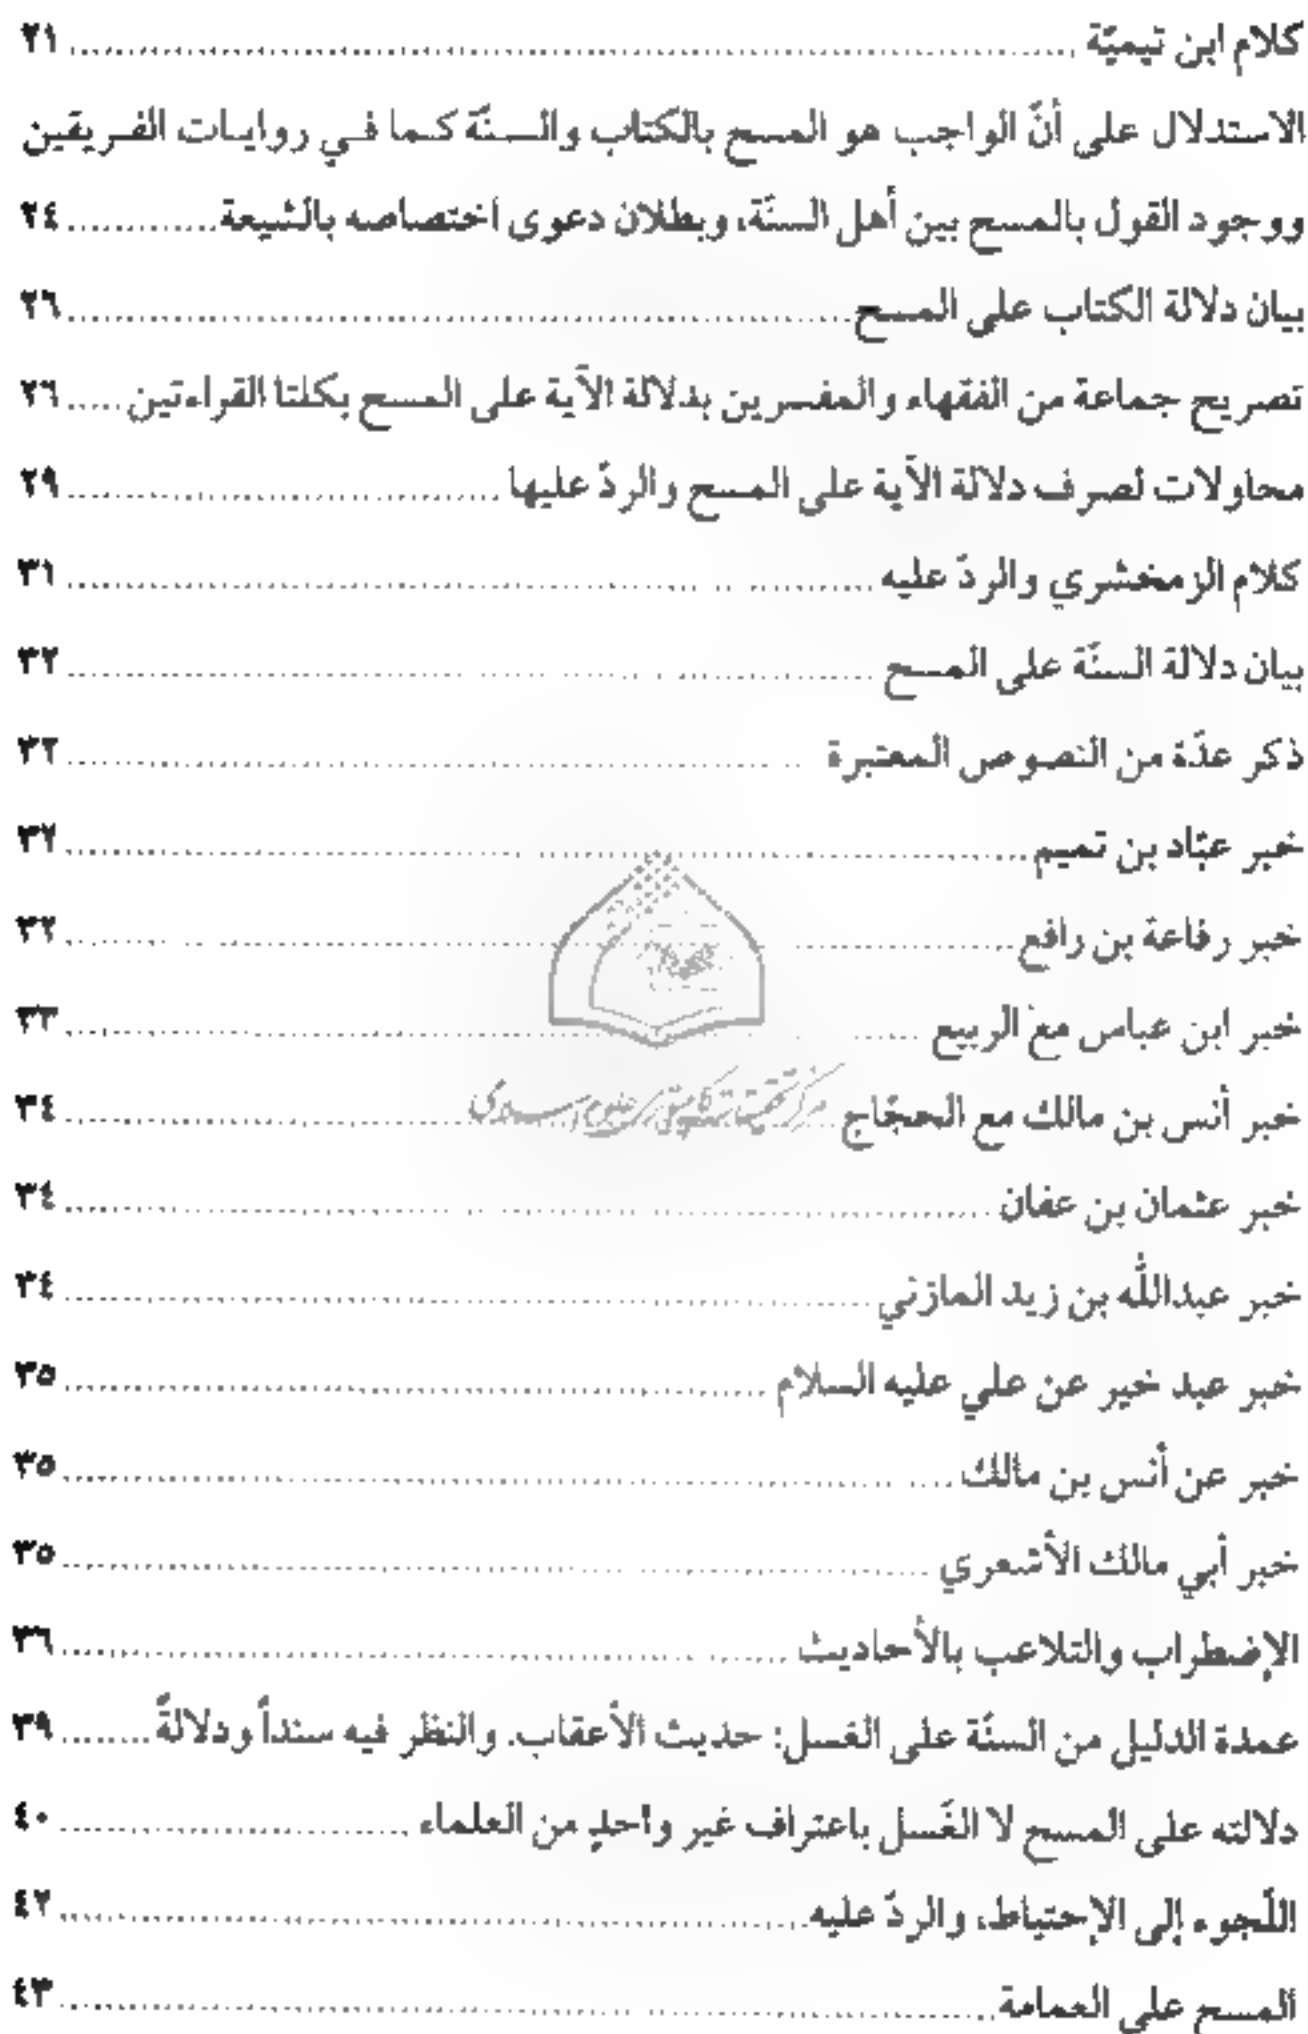 كلام ابن تيميّة ........ ٢١
الاستدلال على أنّ الواجب هو المسح بالكتاب والسنّة كما في روايات الفريقين
ووجود القول بالمسح بين أهل السنّة، وبطلان دعوى اختصاصه بالشيعة ........ ٢٤
بيان دلالة الكتاب على المسح ........ ٢٦
تصريح جماعة من الفقهاء والمفسرين بدلالة الآية على المسح بكلتا القراءتين ..... ٢٦
محاولات لصرف دلالة الآية على المسح والردّ عليها ........ ٢٩
كلام الزمخشري والردّ عليه ........ ٣١
بيان دلالة السنّة على المسح ........ ٣٢
ذكر عدّة من النصوص المعتبرة ........ ٣٢
خبر عبّاد بن تميم ........ ٣٢
خبر رفاعة بن رافع ........ ٣٢
خبر ابن عباس مع الربيع ........ ٣٣
خبر أنس بن مالك مع الحجّاج ........ ٣٤
خبر عثمان بن عفان ........ ٣٤
خبر عبدالله بن زيد المازني ........ ٣٤
خبر عبد خير عن علي عليه السلام ........ ٣٥
خبر عن أنس بن مالك ........ ٣٥
خبر أبي مالك الأشعري ........ ٣٥
الإضطراب والتلاعب بالأحاديث ........ ٣٦
عمدة الدليل من السنّة على الغسل: حديث الأعقاب. والنظر فيه سنداً ودلالةً ........ ٣٩
دلالته على المسح لا الغَسل باعتراف غير واحدٍ من العلماء ........ ٤٠
اللّجوء إلى الإحتياط، والردّ عليه ........ ٤٢
المسح على العمامة ........ ٤٣